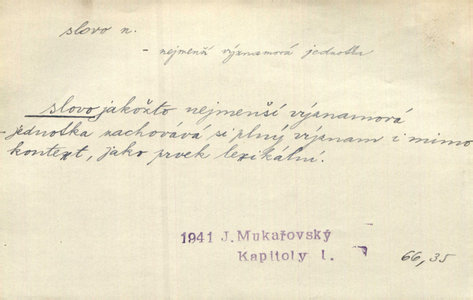 slovo n.
- nejmenší významová jednotka
slovo jakožto nejmenší významová
- jednotka zachovává si plný význam i mimo
kontext, jako prvek lexikální.
1941 J. Mukařovský
Kapitoly I.
66,35